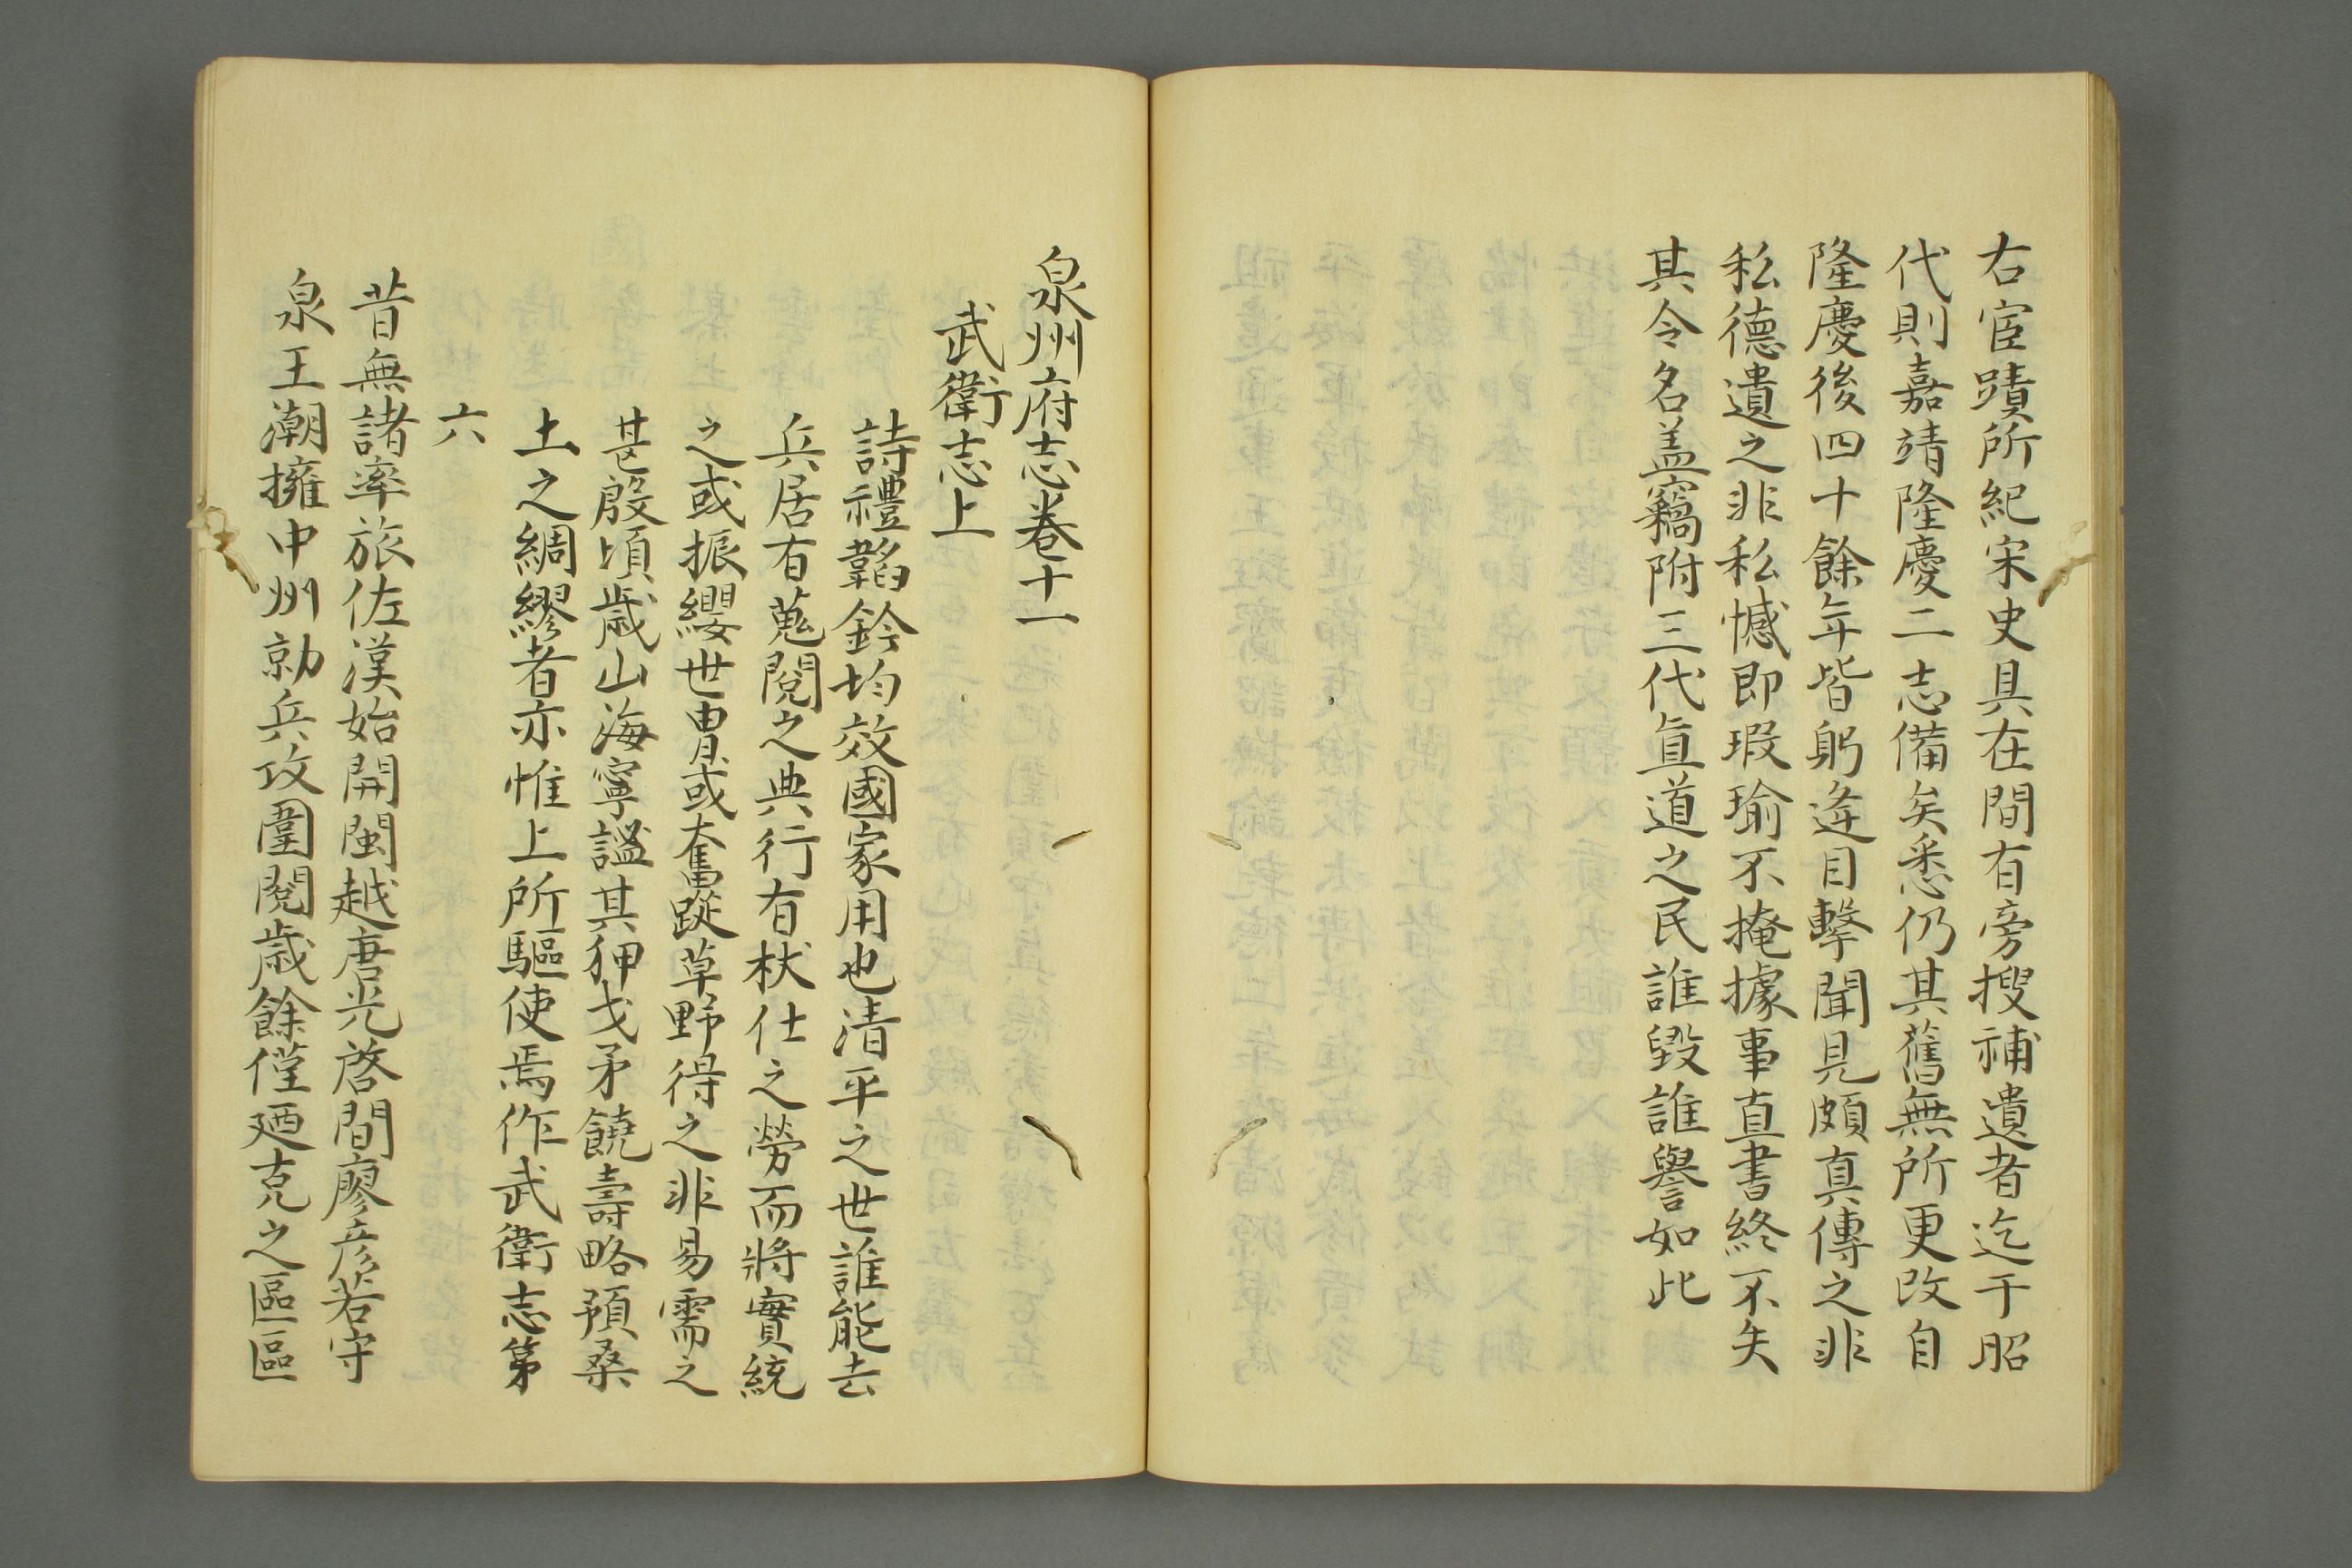 右宦蹟所紀宋史具在間有旁搜補遺者迄于昭
代則嘉靖隆慶二志備矣悉仍其舊無所更改自
隆慶後四十餘年皆躬逢目擊聞見頗真傳之非
私德遺之非私憾即瑕瑜不掩據事直書終不失
其令名盖竊附三代直道之民誰毀誰譽如此
泉州府志卷十一
武衛志上
詩禮韜鈐均效國家用也清平之世誰能去
兵居有蒐閱之典行有杕仕之勞而將實統
之或振纓世冑或奮蹤草野得之非易需之
甚殷頃歳山海寧謐其狎戈矛饒壽略預桑
土之綢繆者亦惟上所驅使焉作武衛志第
六
昔無諸率旅佐漢始開閩越唐光啓間廖彦若守
泉王潮擁中州勍兵攻圍閱歳餘僅廼克之區區